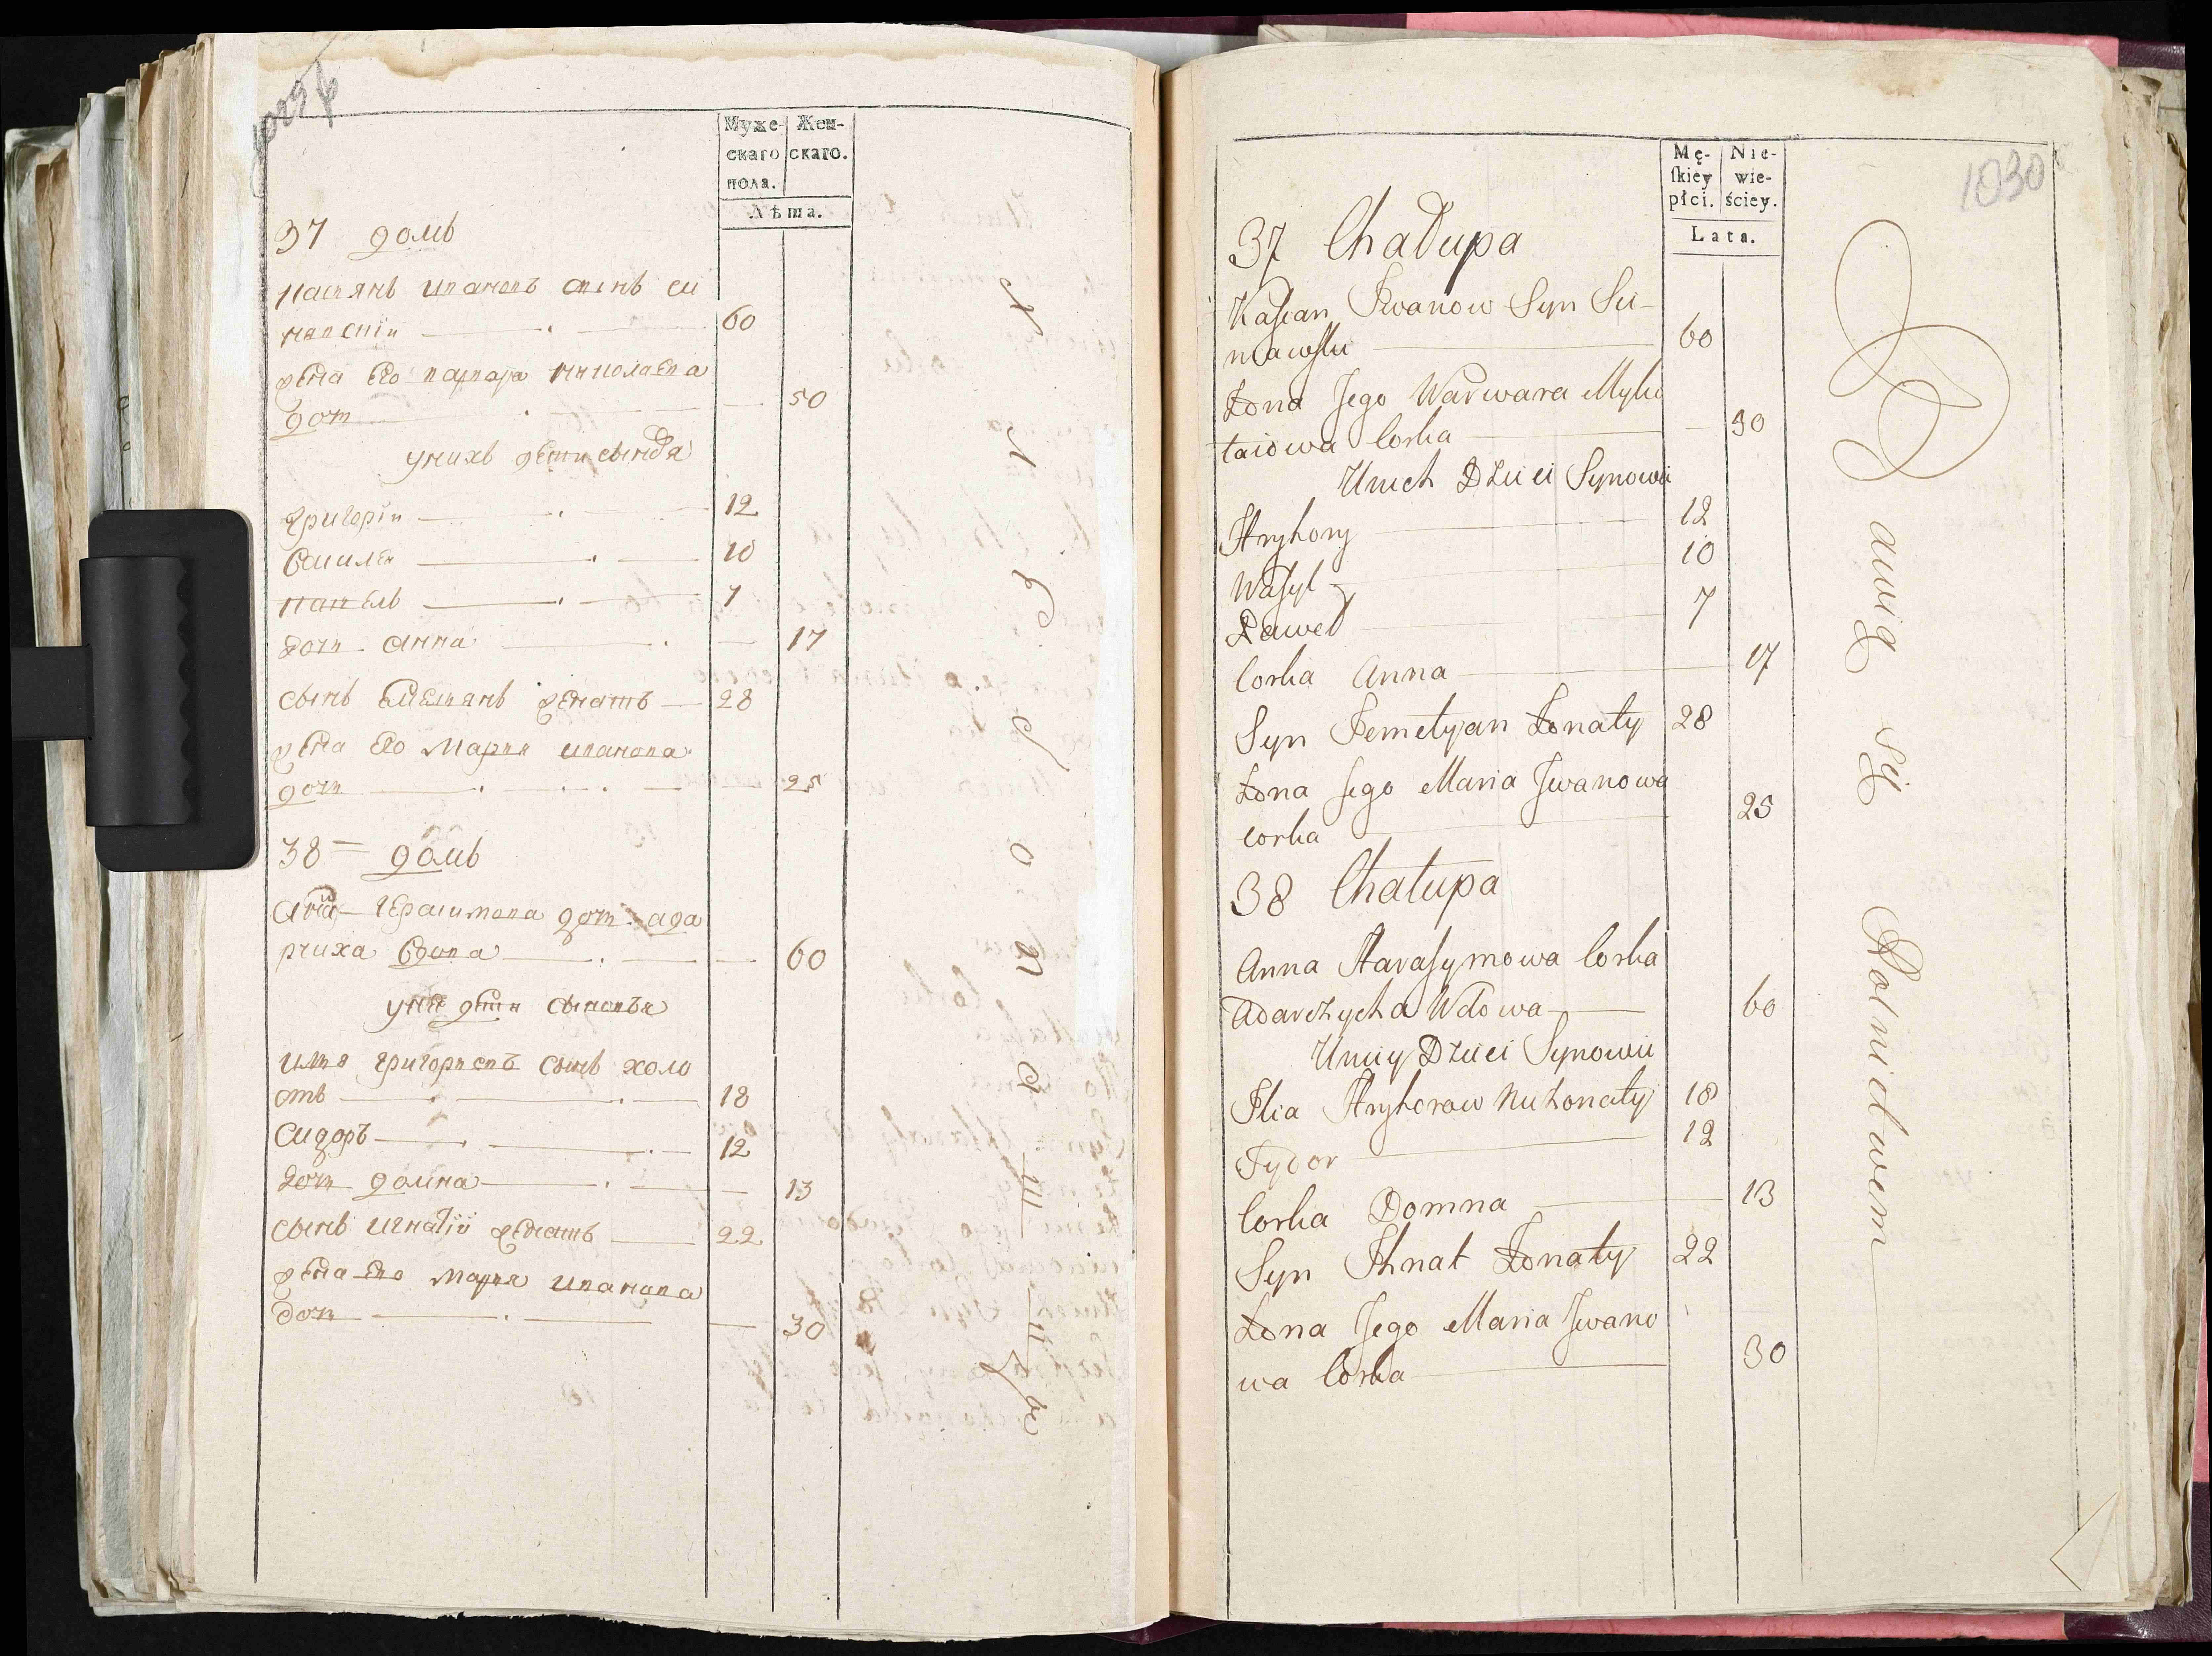 Муже-
скаго
пола.
Жен-
скаго.
Лѣта.
37 домъ
Касянъ Ивановъ сынъ Си
невскїи 60
жена его варвара николаева
доч 50
у нихъ дети сыновя
Григорїи 12
Василеи 10
павелъ 7
дочь анна 17
сынъ Емелянъ женатъ 28
жена его Мария иванова
дочь 25
38 домъ
герасимова доч ада
рчиха вдова 60
у нее дети сыновья
илия григориевъ сынъ холо
стъ 18
сидоръ 12
дочь домна 13
сынъ игнатїи женатъ 22
жена его мария иванова
дочь 30
1030
Mę-
ſkiey
płci.
Nie-
wie-
ściey.
Lata.
37 Chałupa
Kaſian Iwanow Syn Si-
nıawſki 60
Żona Jego Warwara Myko
łaiowa Corka 50
Unich Dzieci Synowie
Hryhory 12
Waſyl 10
Paweł 7
Corka Anna 17
Syn Jemelyan Żonaty 28
Żona Jego Maria Jwanowa
corka 25
38 Chałupa
Anna Haraſymowa Corka
Adarczycha Wdowa 60
Uniey Dzieci Synowie
Ilia Hryhorow Nieżonaty 18
Sydor 12
Corka Domna 13
Syn Ihnat Żonaty 22
Żona Jego Maria Jwano
wa Corka 30
Bawią się Rolnictwem